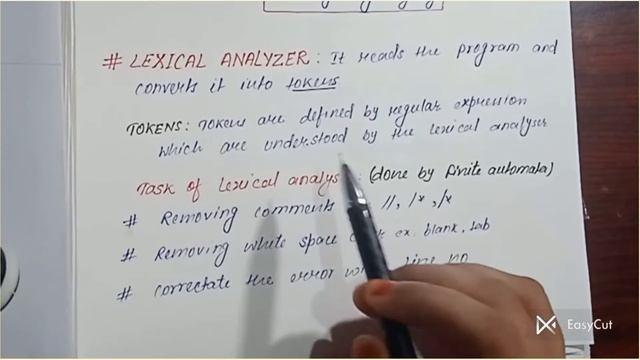 # LEXICAL ANALYZER : It reads the program and
converts it into tokens
TOKENS : Tokens are defined by regular expression
which are understood by the lexical analyser
Task of Lexical analys : (done by finite automata)
# Removing comments //, /*, /*
# Removing white space ex. blank, tab
# correctate the error line no
EasyCut